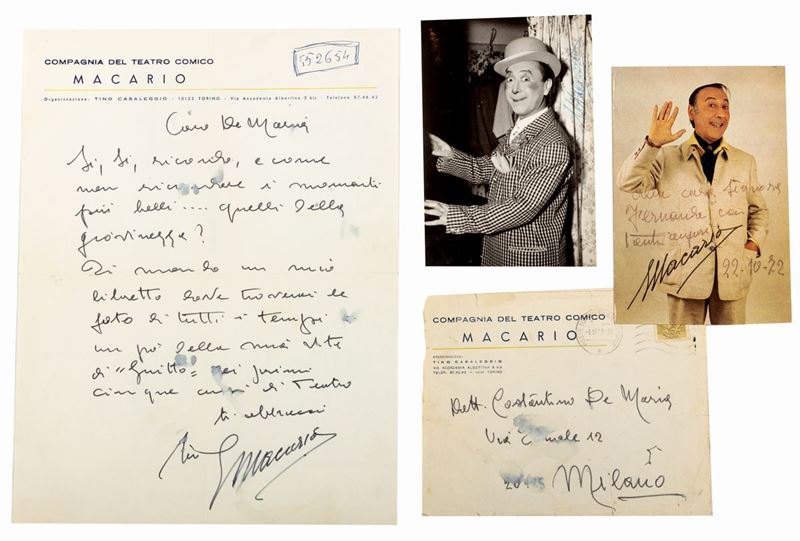 COMPAGNIA DEL TEATRO COMICO
MACARIO
Organizzazione: TINO CASALEGGIO - 10123 TORINO - Via Accademia Albertina 3 bis - Telefono 87.46.42
552654
Caro De Maria
Si, si, ricordo, e come
non ricordare i momenti
più belli .... quelli della
giovinezza?
Ti mando un mio
libretto dove troverai le
foto di tutti i tempi
un po' della mia vita
di "Guitto" nei primi
cinque anni di Teatro
ti abbracci
Macario
alla cara Signora
Fernanda con
tanti auguri
Macario
22-10-72
COMPAGNIA DEL TEATRO COMICO
MACARIO
ORGANIZZAZIONE:
TINO CASALEGGIO
VIA ACCADEMIA ALBERTINA 3 bis
TELEF. 87.46.42 - 10123 TORINO
Dott. Costantino De Maria
Via 12
Milano